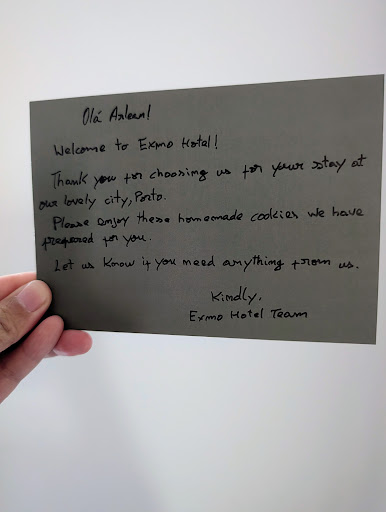 Olá Arleen!
Welcome to Exmo Hotel!
Thank you for choosing us for your stay at
our lovely city, Porto.
Please enjoy these homemade cookies we have
prepared for you.
Let us know if you need anything from us.
Kindly,
Exmo Hotel Team